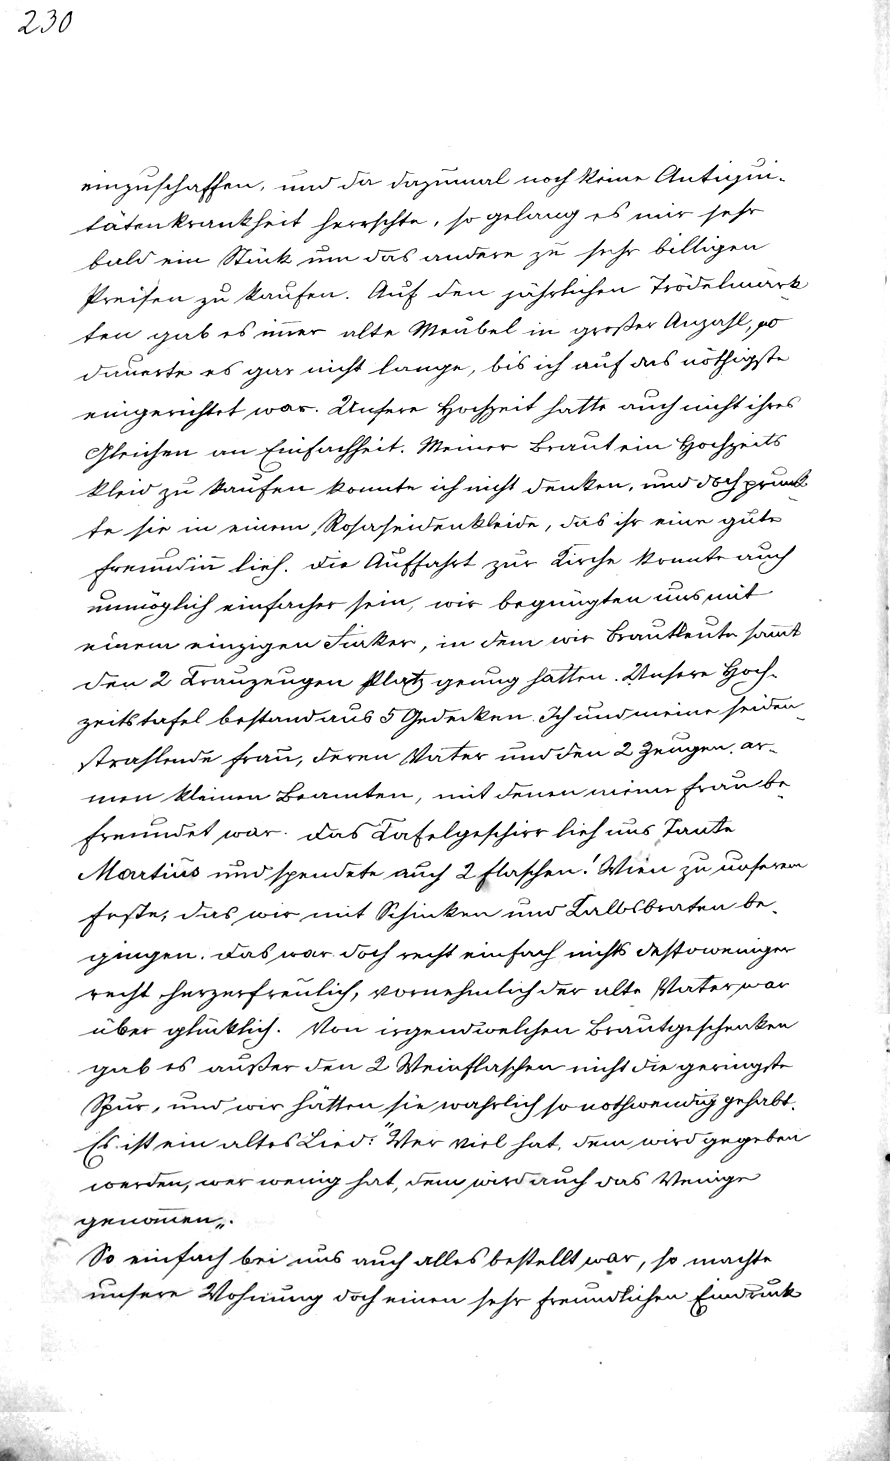 230
einzuschaffen, und da dazumal noch keine Antiqui-
tätenkrankheit herrschte, so gelang es mir sehr
bald ein Stück um das andere zu sehr billigen
Preisen zu kaufen. Auf den jährlichen Trödelmärk-
ten gab es im̅er alte Meubel in großer Anzahl, so
dauerte es gar nicht lange, bis ich auf das nöthigste
eingerichtet war. Unsere Hochzeit hatte auch nicht ihres
Gleichen an Einfachheit. Meiner Braut ein Hochzeits
kleid zu kaufen konnte ich nicht denken, und doch prunk-
te sie in einem Rosaseidenkleide, das ihr eine gute
Freundin̅ lieh. Die Auffahrt zur Kirche konnte auch
unmöglich einfacher sein, wir begnügten uns mit
einem einzigen Fiaker, in dem wir Brautleute sam̅t
den 2 Trauzeugen Platz genug hatten. Unsere Hoch-
zeitstafel bestand aus 5 Gedecken. Ich und meine seiden-
strahlende Frau, deren Vater und den 2 Zeugen, ar-
men kleinen Beamten, mit denen meine Frau be-
freundet war. Das Tafelgeschirr lieh uns Tante
Martius und spendete auch 2 Flaschen! Wien zu unserem
Feste, das wir mit Schinken und Kalbsbraten be-
gingen. Das war doch recht einfach nichts destoweniger
recht herzerfreulich, vornehmlich der alte Vater war
über glücklich. Von irgendwelchen Brautgeschenken
gab es außer den 2 Weinflaschen nicht die geringste
Spur, und wir hätten sie wahrlich so nothwendig gehabt.
Es ist ein altes Lied: "Wer viel hat, dem wird gegeben
werden, wer wenig hat, dem wird auch das Wenige
genom̅en„.
So einfach bei uns auch alles bestellt war, so machte
unsere Wohnung doch einen sehr freundlichen Eindruck